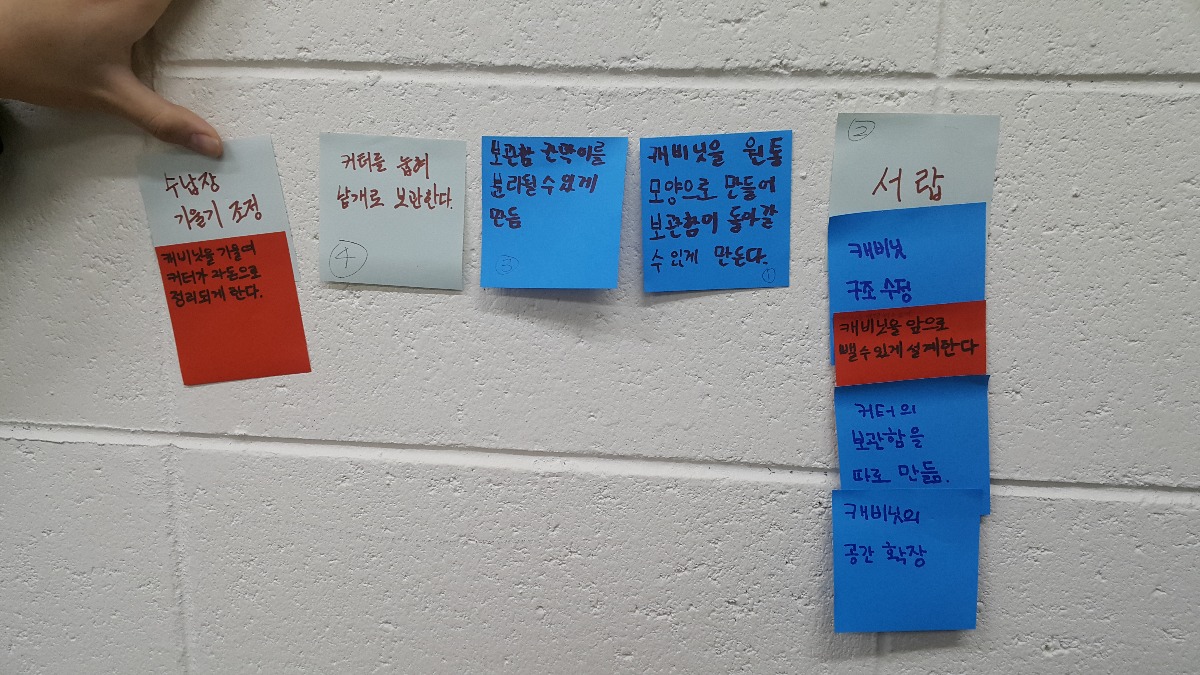 수납장
기울기 조정
캐비닛을 기울여
커터가 자돈으로
정리되게 한다.
커터를 눕혀
낱개로 보관한다.
④
보관함 칸막이를
분리될 수 있게
만듦
③
캐비닛을 원통
모양으로 만들어
보관함이 돌아갈
수 있게 만든다.
①
②
서랍
캐비닛
구조 수정
캐비닛을 앞으로
뺄 수 있게 설계한다
커터의
보관함을
따로 만듦.
캐비닛의
공간 확장